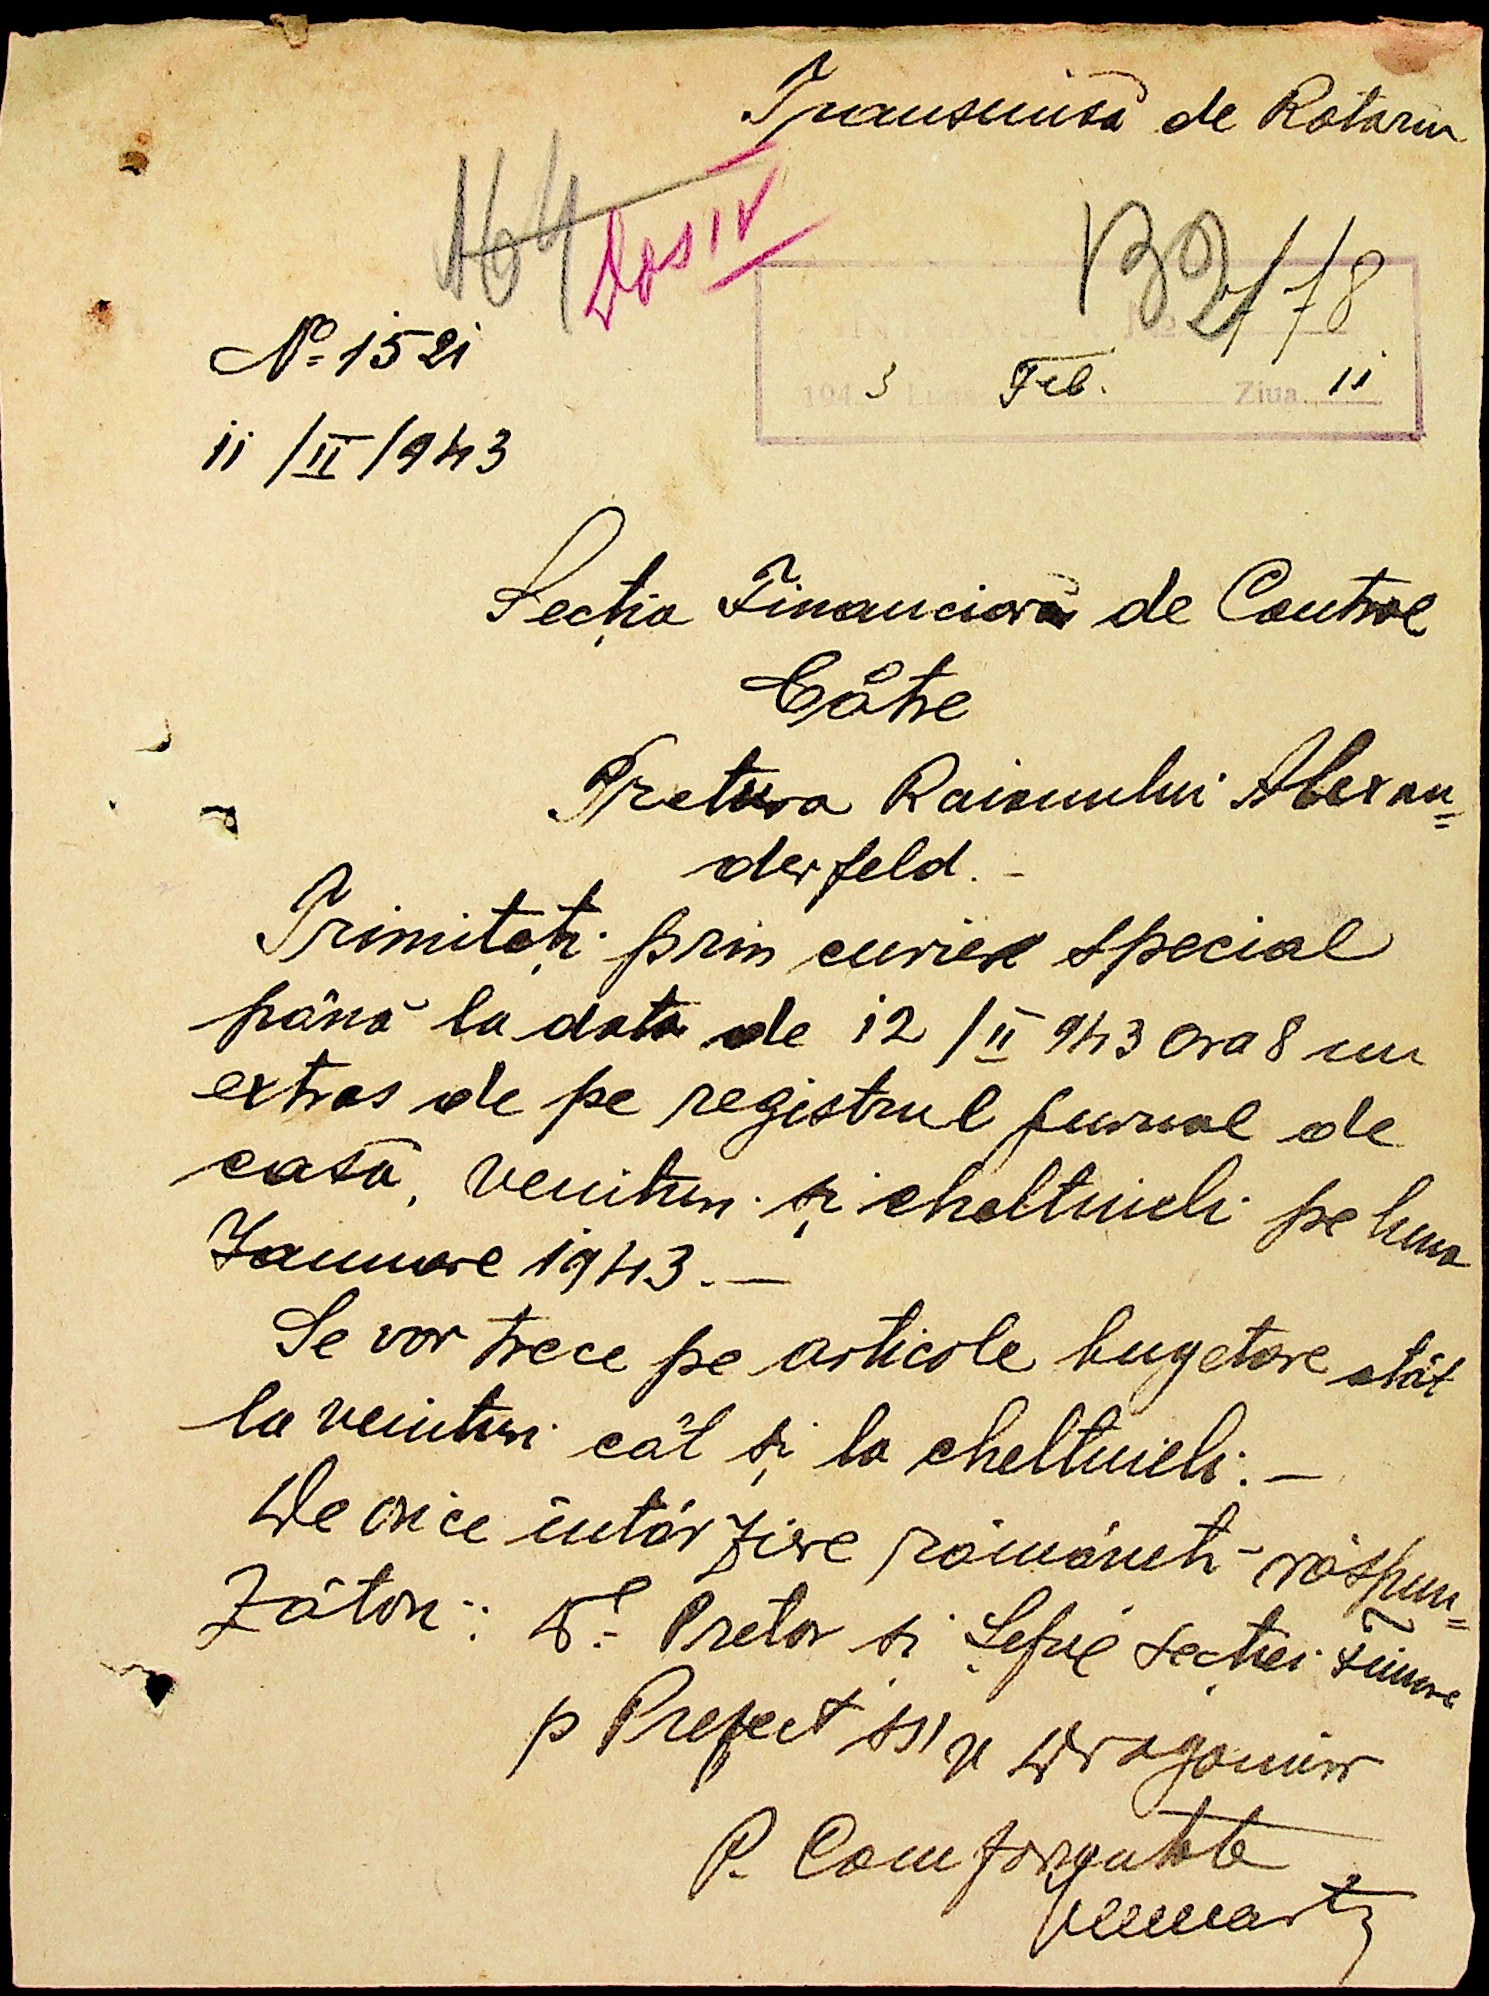 Transmisă de Rotaru
164
Dos IV
132/78
No 1521
194 3 Luna Feb. Ziua 11
11/II/943
Secția Financiară de Control
Către
Pretura Raionului Alexan=
derfeld.-
Trimiteți prin curier special
până la data de 12/II 943 ora 8 un
extras de pe registrul jurnal de
casă, venituri și cheltuieli pe luna
Januare 1943.-
Se vor trece pe articole bugetare atât
la venituri cât și la cheltuieli.-
De orice întârziere rămâneți răspun=
zători: Dl Pretor si Șeful secției
p Prefect ss) V Dragomir
P. Conformitate